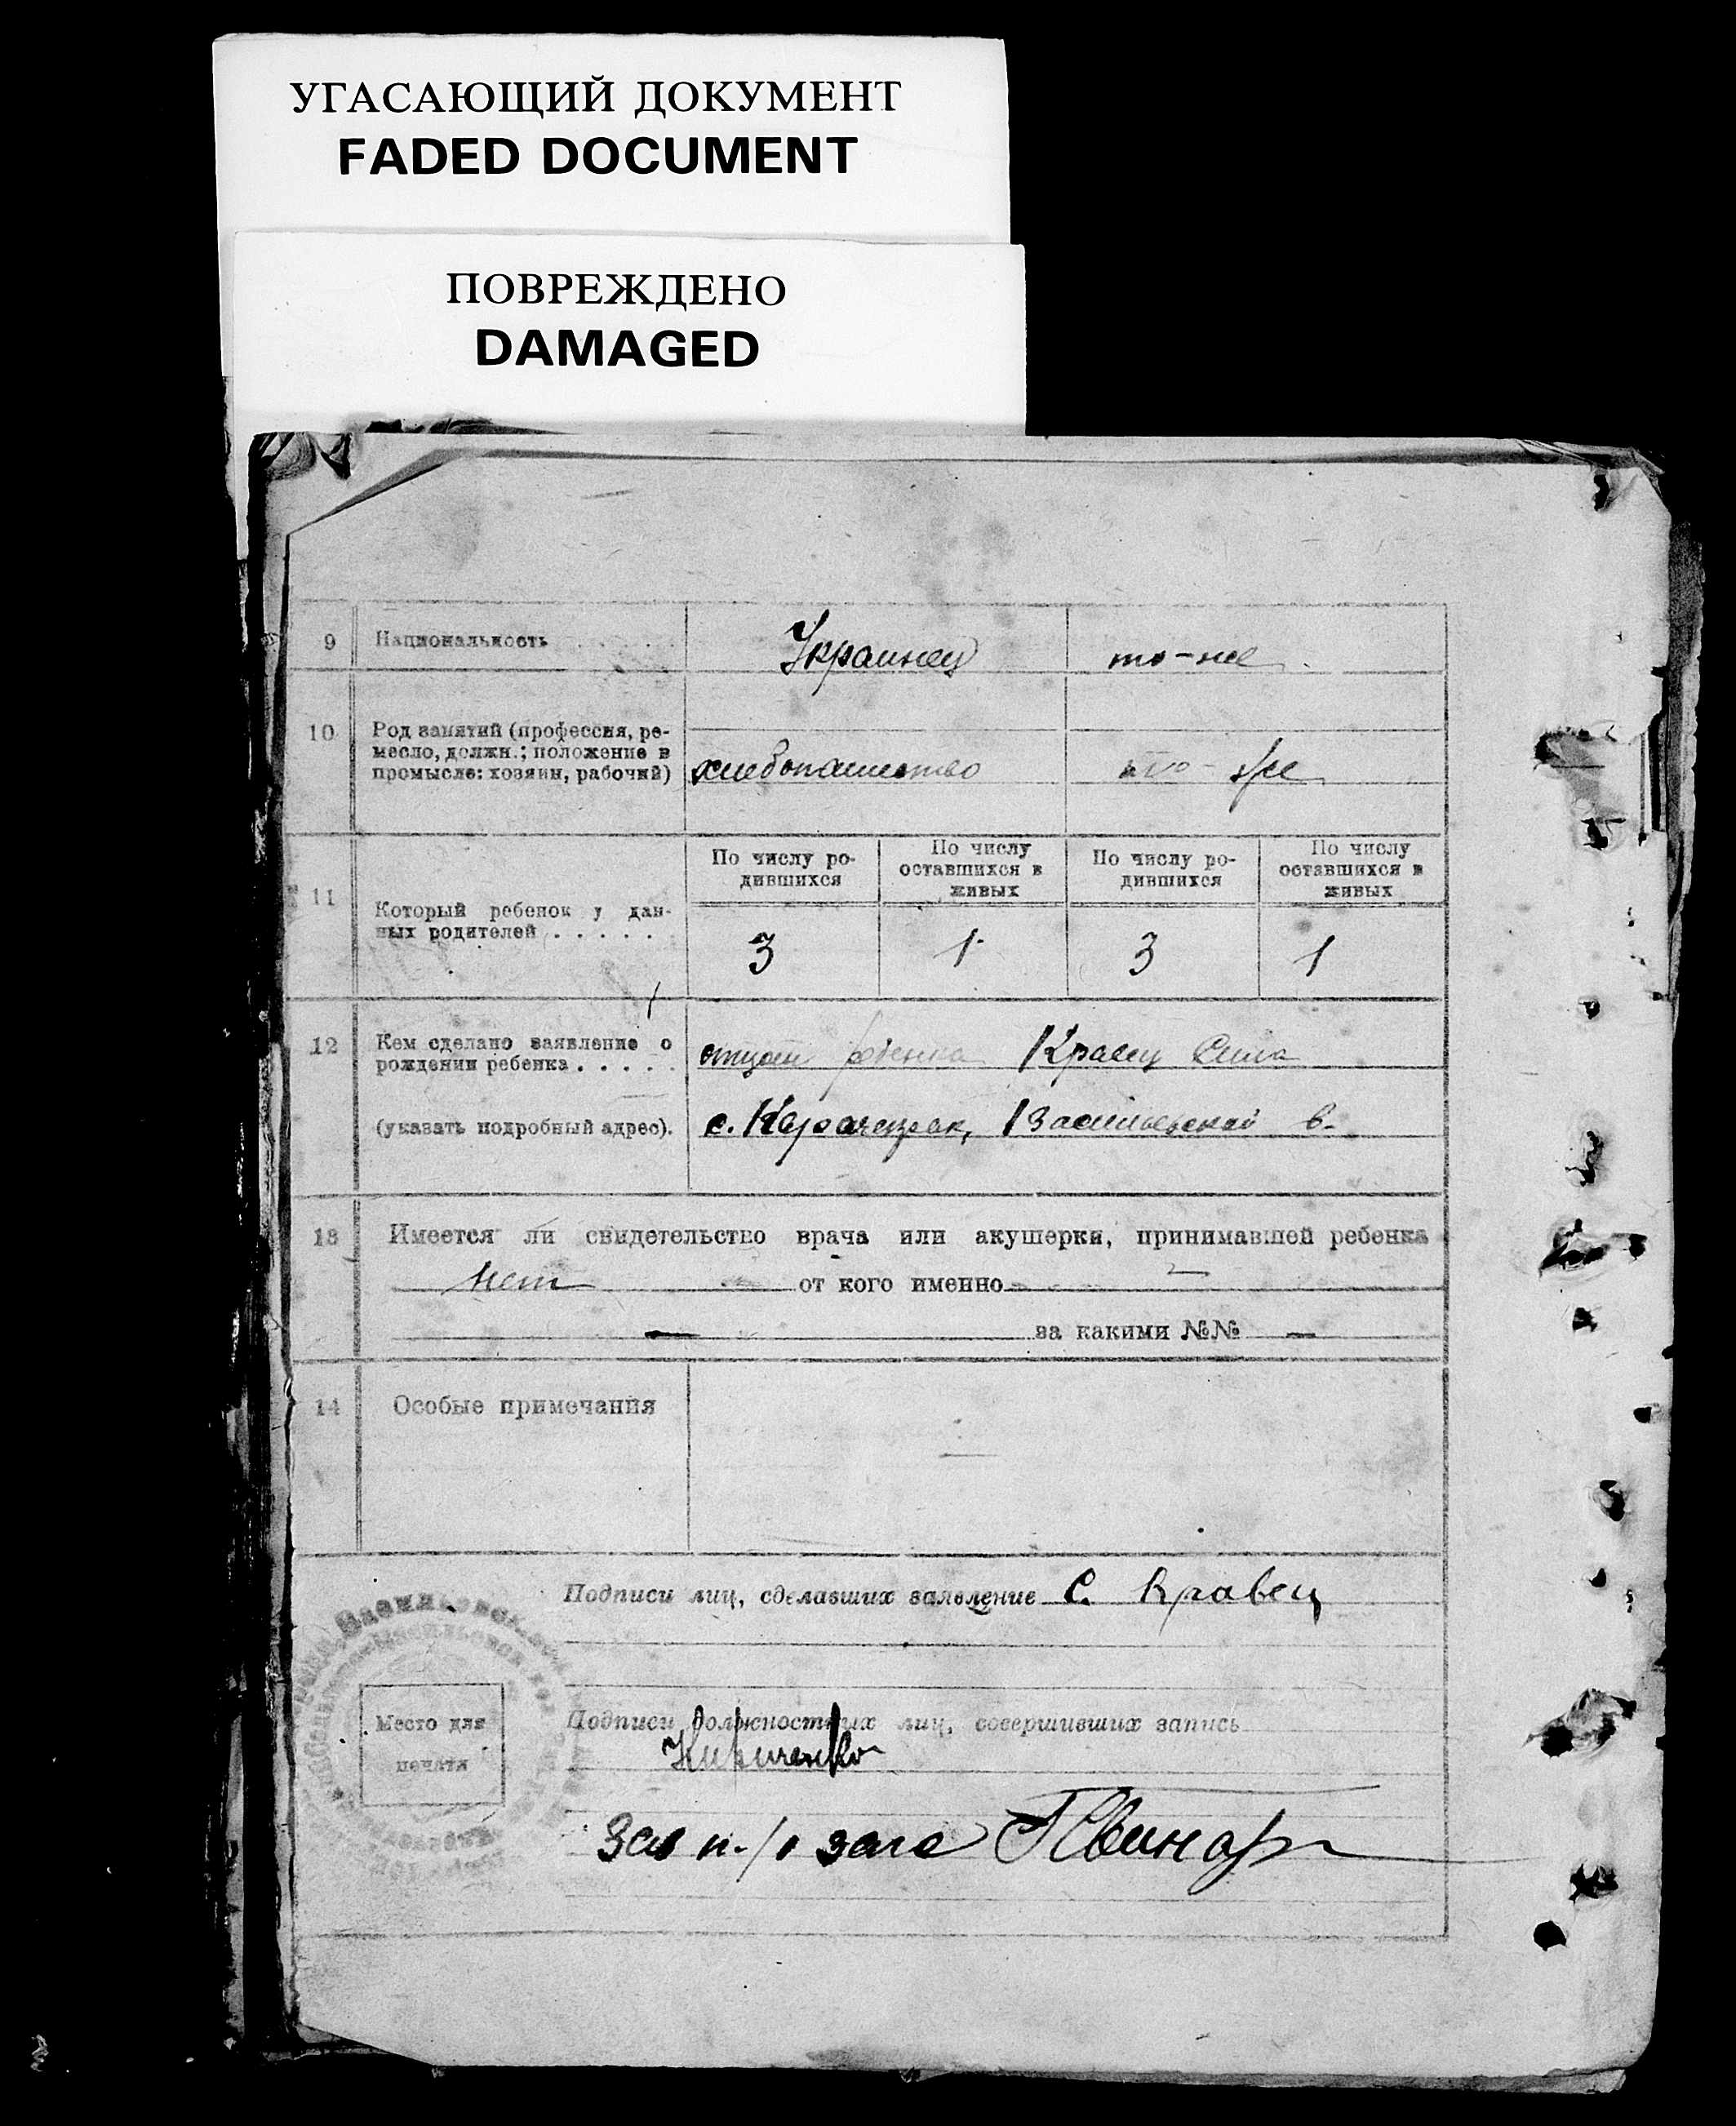 УГАСАЮЩИЙ ДОКУМЕНТ
FADED DOCUMENT
ПОВРЕЖДЕНО
DAMAGED
9 Национальность . . . . . Украинец то-же
10 Род занятий (профессия, ре-
месло, должн.; положение в
промысле: хозяин, рабочий) хлебопашество то-же
11 Который ребенок у дан-
ных родителей . . . . .
По числу ро-
дившихся
По числу
оставшихся в
живых
По числу ро-
дившихся
По числу
оставшихся в
живых
3 1 3 1
12 Кем сделано заявление о
рождении ребенка . . . . . отцом ребенка Кравец Сила
(указать подробный адрес). с. Карачекрак, Васильевской в.
13 Имеется ли свидетельство врача или акушерки, принимавшей ребенка
нет от кого именно —
— за какими №№ —
14 Особые примечания —
Подписи лиц, сделавших заявление С. Кравец
Место для
печати
Подписи должностных лиц, совершивших запись
Кириченко
Зав п/о загс